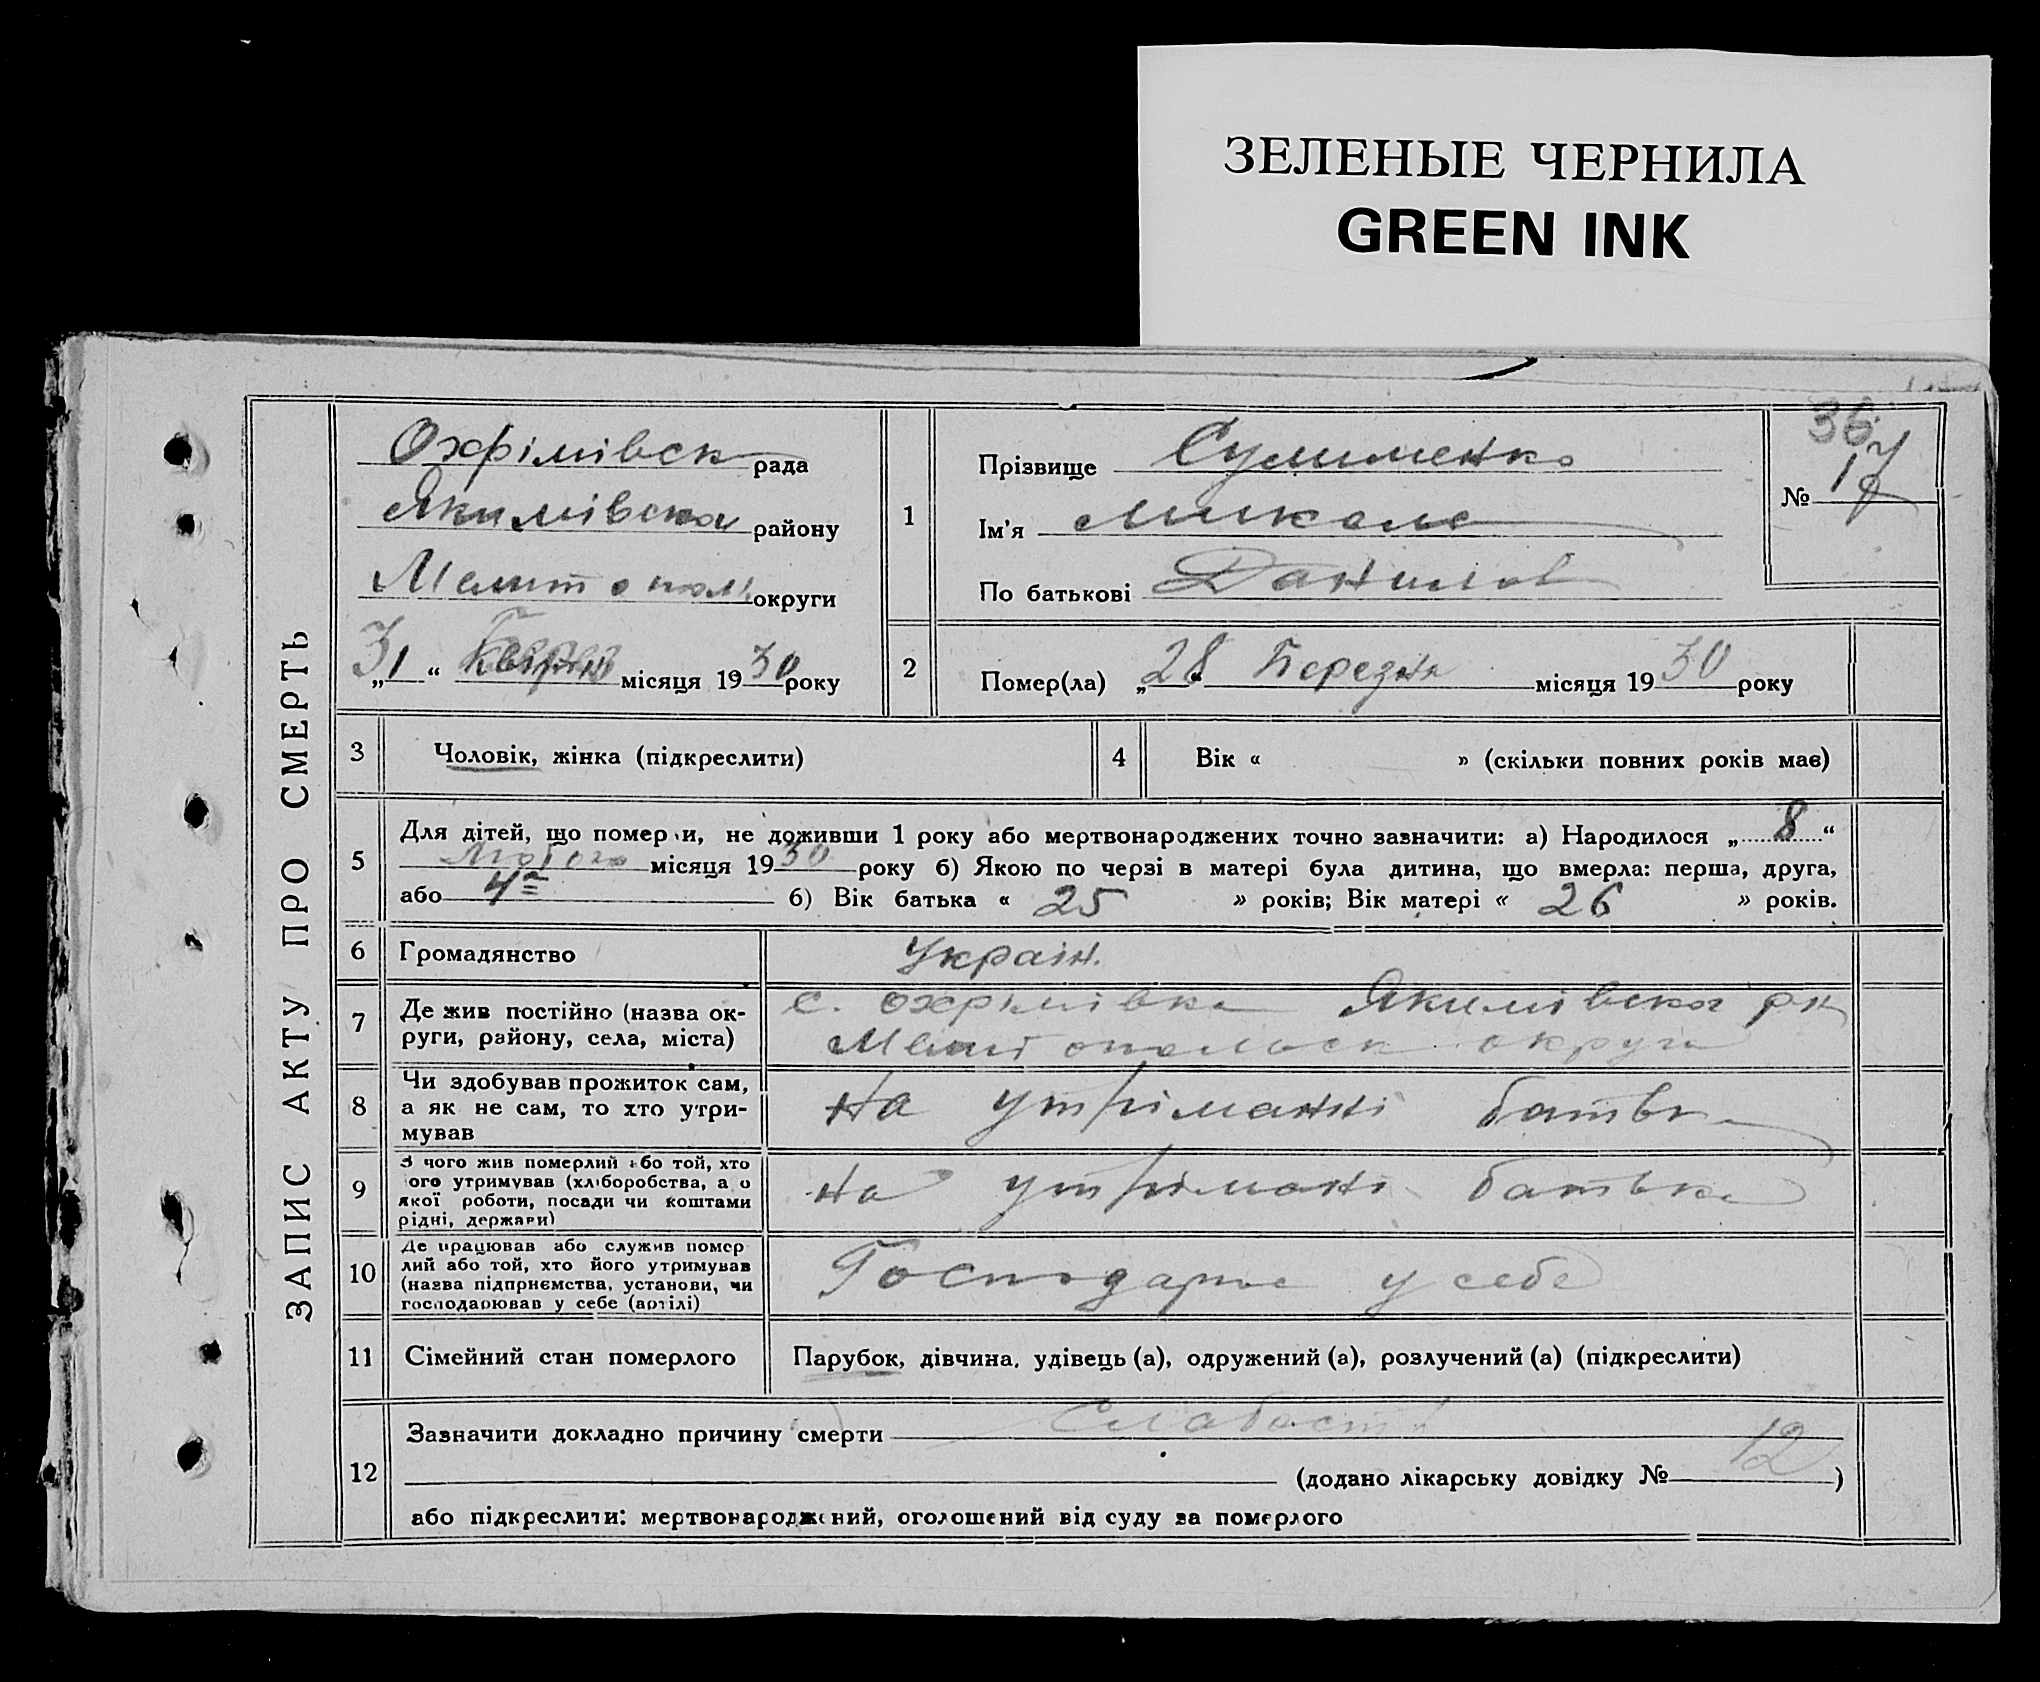 ЗЕЛЕНЫЕ ЧЕРНИЛА
GREEN INK
ЗАПИС АКТУ ПРО СМЕРТЬ
Охрімівськ рада
Якимівська району
Мелитополь округи
„31“ місяця 1930 року
1
Прізвище Сулименко
Ім'я Микола
По батькові Данилов
36
№ 17
2
Помер(ла) „28“ Березня місяця 1930 року
3 Чоловік, жінка (підкреслити)
4 Вік « » (скільки повних років має)
5
Для дітей, що померли, не доживши 1 року або мертвонароджених точно зазначити: а) Народилося „8“
Лютого місяця 1930 року б) Якою по черзі в матері була дитина, що вмерла: перша, друга,
або 4а б) Вік батька « 25 » років; Вік матері « 26 » років.
6 Громадянство Україн.
7
Де жив постійно (назва ок-
руги, району, села, міста)
с. Охрімівка Якимівска р-н
Мелитопольск округи
8
Чи здобував прожиток сам,
а як не сам, то хто утри-
мував
на утріманні батька
9
З чого жив померлий або той, хто
його утримував (хліборобства, а о
якої роботи, посади чи коштами
рідні, держави)
на утрімані батька
10
Де працював або служив помер
лий або той, хто його утримував
(назва підприємства, установи, чи
господарював у себе (артілі)
Господарює у себе
11 Сімейний стан померлого Парубок, дівчина, удівець (а), одружений (а), розлучений (а) (підкреслити)
12
Зазначити докладно причину смерти Слабость
(додано лікарську довідку № 12)
або підкреслити: мертвонароджений, оголошений від суду за померлого